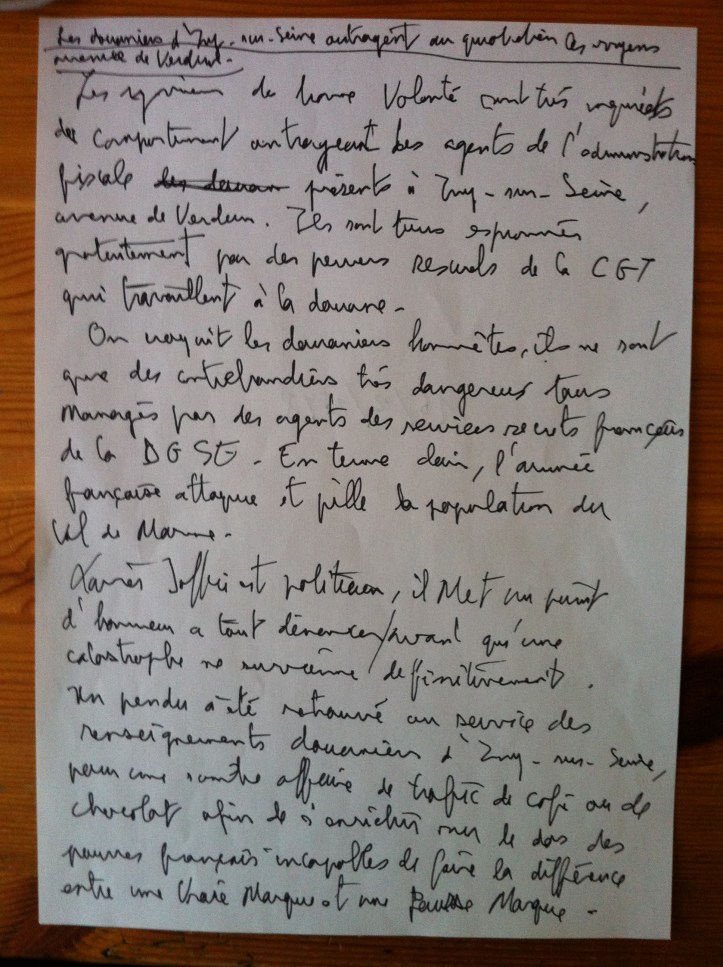 Les douaniers d'Ivry-sur-Seine outragent au quotidien les
avenue de Verdun.
Les de bonne Volonté sont très inquiets
du comportement outrageant des agents de l'administration
fiscale présents à Ivry-sur-Seine,
avenue de Verdun. Ils sont tous espionnés
gratuitement par des pervers de la CGT
qui travaillent à la douane.
On croyait les douaniers honnêtes, ils ne sont
que des contrebandiers très dangereux tous
managés par des agents des services secrets français
de la DGSE. En terme clair, l'armée
française attaque et pille la population du
Val de Marne.
Xavier est politicien, il Met un point
d'honneur a tout dénoncer avant qu'une
catastrophe ne survienne deffinitivement.
Un pendu a été retrouvé au service des
renseignements douaniers d'Ivry-sur-Seine,
pour une sombre affaire de trafic de café ou de
chocolat afin de s'enrichir sur le dos des
pauvres français incapables de faire la différence
entre une Vraie Marque et une Fausse Marque.